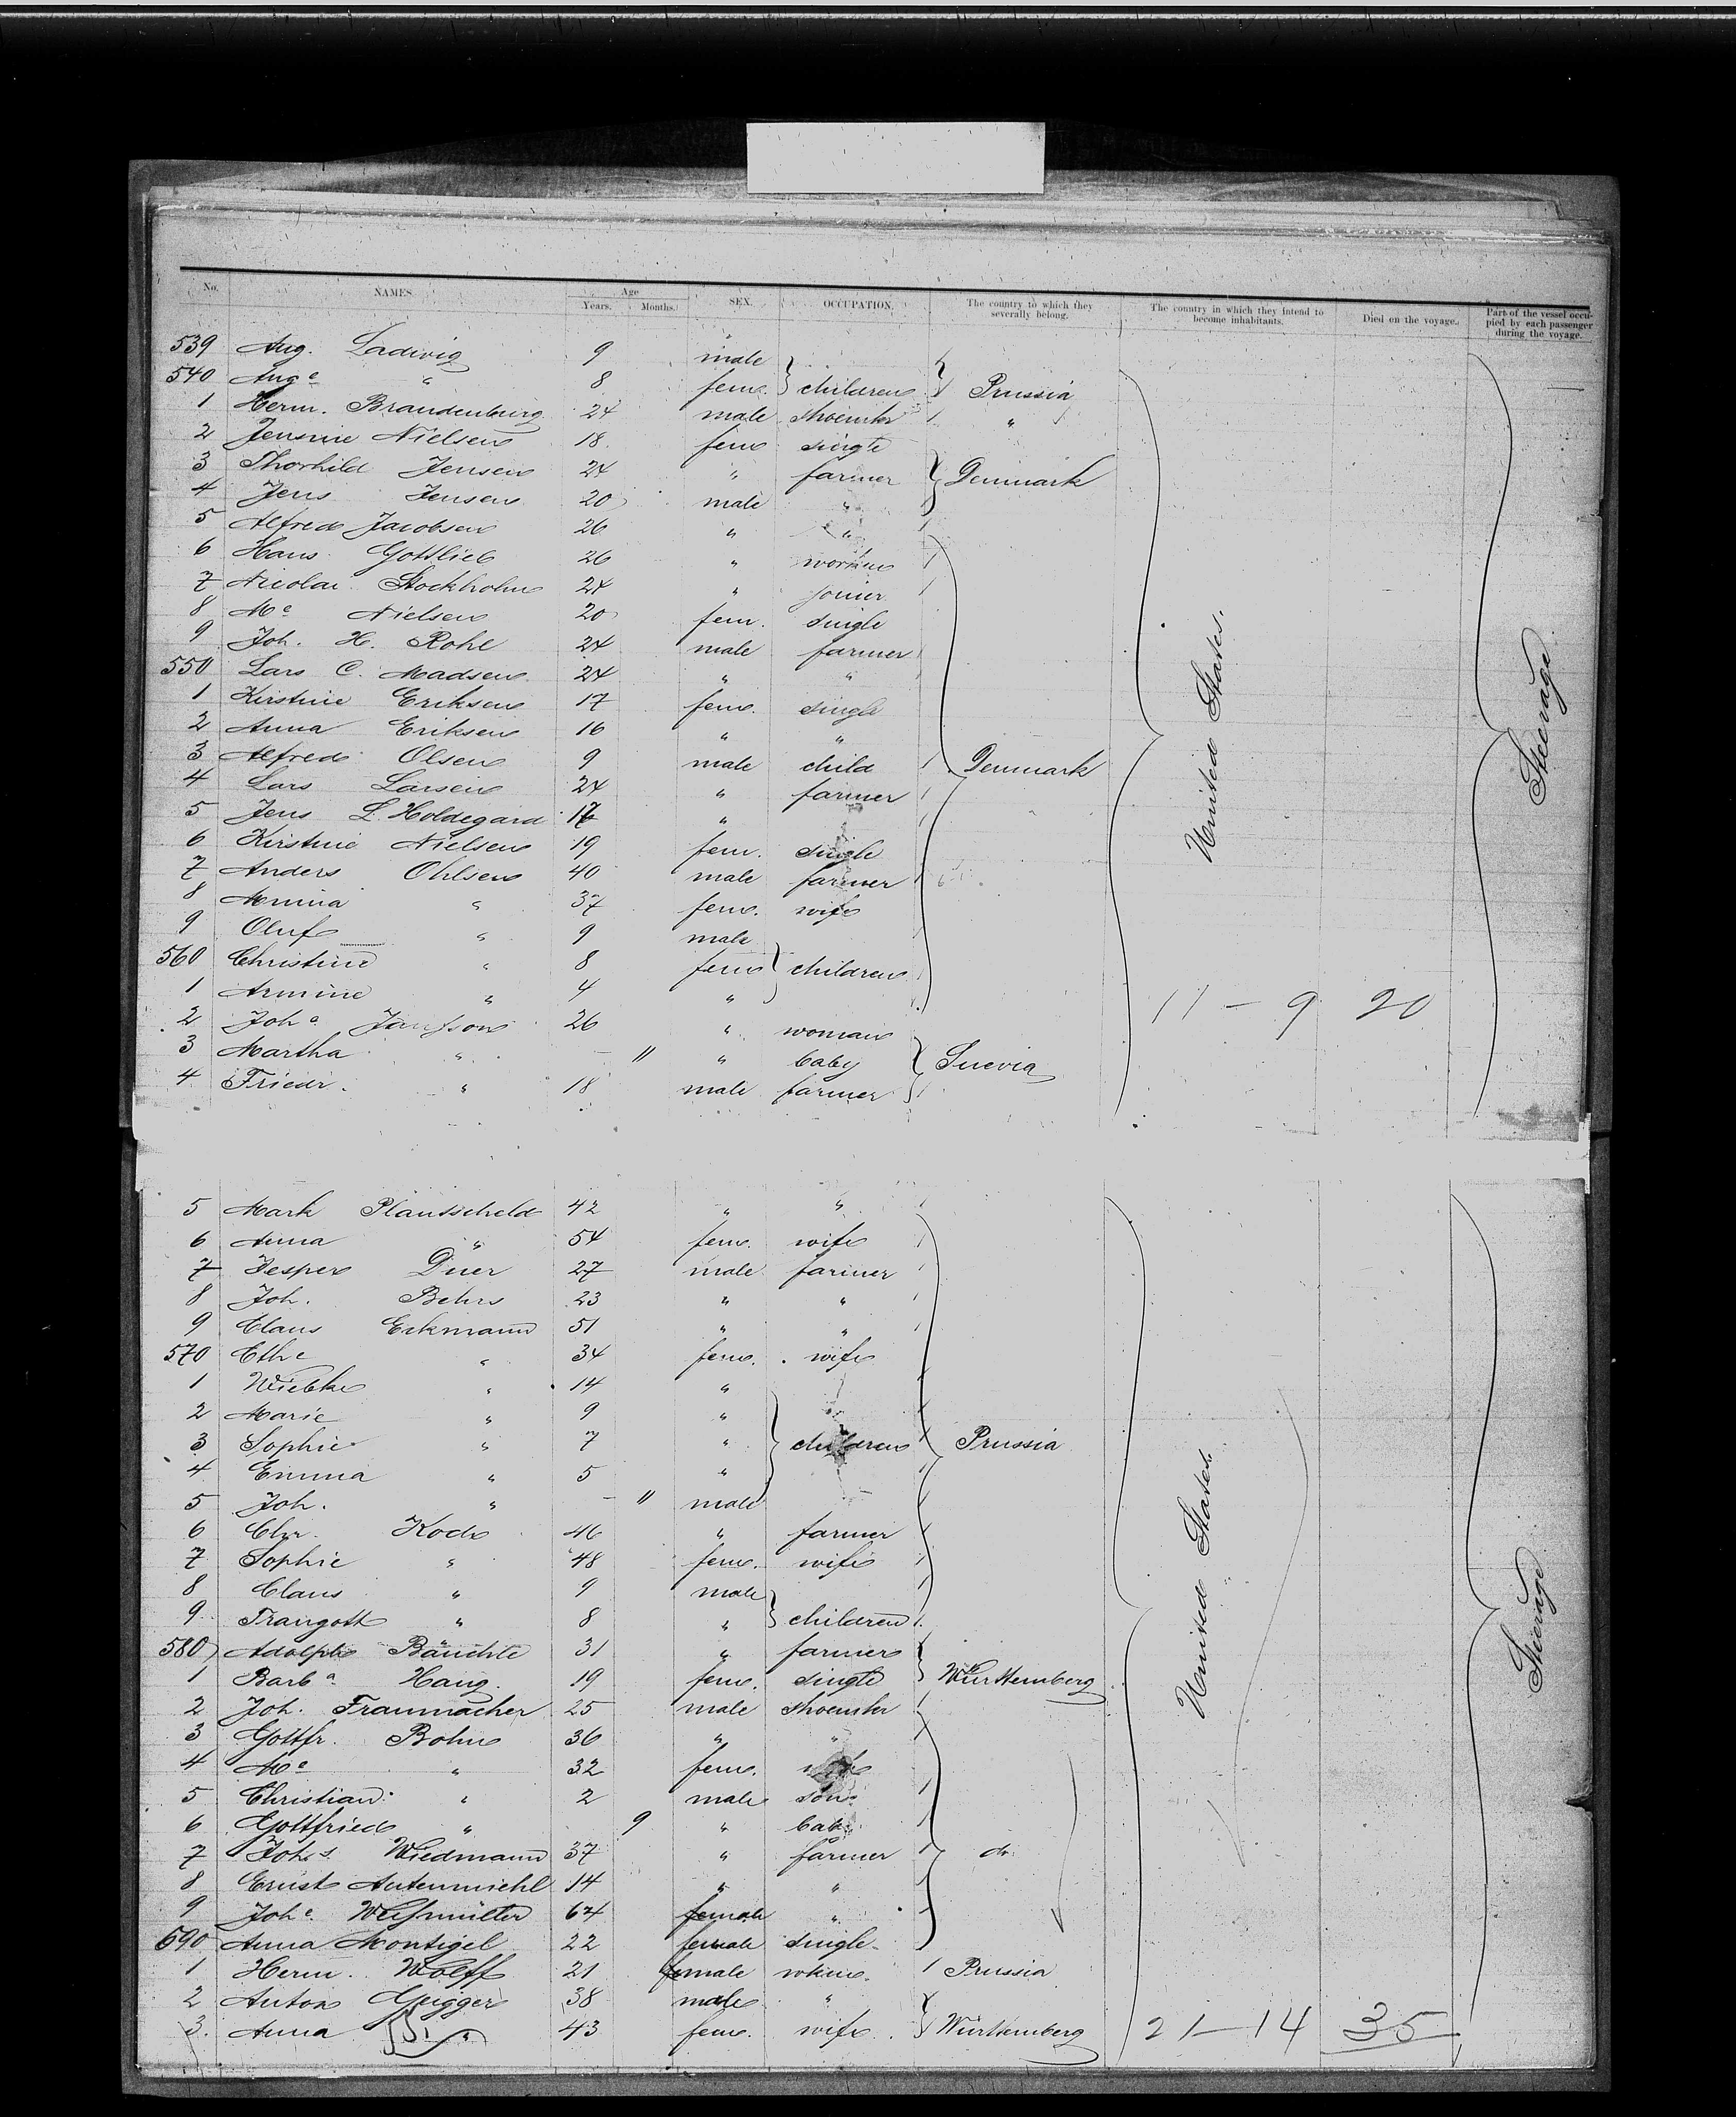 No. NAMES Age Years. Months. SEX. OCCUPATION. The country to which they severally belong. The country in which they intend to become inhabitants. Died on the voyage. Part of the vessel occupied by each passenger during the voyage.
539 Aug. Ladwig 9 male
540 Auge " 8 fem. children Prussia
1 Herm. Brandenburg 24 male shoemkr "
2 Jensine Nielsen 18 fem single
3 Thorhild Jensen 24 " farmer Denmark
4 Jens Jensen 20 male "
5 Alfred Jacobsen 26 " "
6 Hans Gottlieb 26 "
7 Nicolai Stockholm 24 " joiner
8 Me Nielsen 20 fem. single
9 Joh. H. Rohl 24 male farmer
550 Lars C. Madsen 24 " "
1 Kirstine Eriksen 17 fem. single
2 Anna Eriksen 16 " "
3 Alfred Olsen 9 male child Denmark
4 Lars Larsen 24 " farmer
5 Jens L. Holdegard "
6 Kirstine Nielsen 19 fem. single
7 Anders Ohlsen 40 male farmer
8 Minna " 37 fem. wife
9 Oluf " 9 male
560 Christine " 8 fem children
1 Armine " 4 "
2 Joha 26 " woman
3 Martha " - 11 " baby Suevia
4 Friedr. " 18 male farmer
United States.
Steerage
11 - 9 20
5 Mark 42 " "
6 Anna " 54 fem. wife
7 Jesper Duer 27 male farmer
8 Joh. Behrs 23 " "
9 Claus Eckmann 51 " "
570 Ethe " 34 fem. wife
1 Wiebke " 14 "
2 Marie " 9 "
3 Sophie " 7 " children Prussia
4 Emma " 5 "
5 Joh. " - 11 male
6 Chr. Koch 46 " farmer
7 Sophie " 48 fem. wife
8 Claus " 9 male
9 Traugott " 8 " children
580 Adolph Bäuchle 31 " farmer
1 Barba Haug. 19 fem. single Württemberg
2 Joh. Fraumacher 25 male shoemkr
3 Gottfr. Bohn 36 " "
4 Me " 32 fem. wife
5 Christian " 2 male son
6 Gottfried " 9 " baby
7 Johs. Wiedmann 37 " farmer do.
8 Ernst Autenriehl 14 " "
9 Johe. 64 female "
590 Anna Montigel 22 female single
1 Herm. Wolff 21 male Prussia
2 Anton Geigger 38 male "
3. Anna " 43 fem. wife Württemberg
United States.
Steerage
21 - 14 35